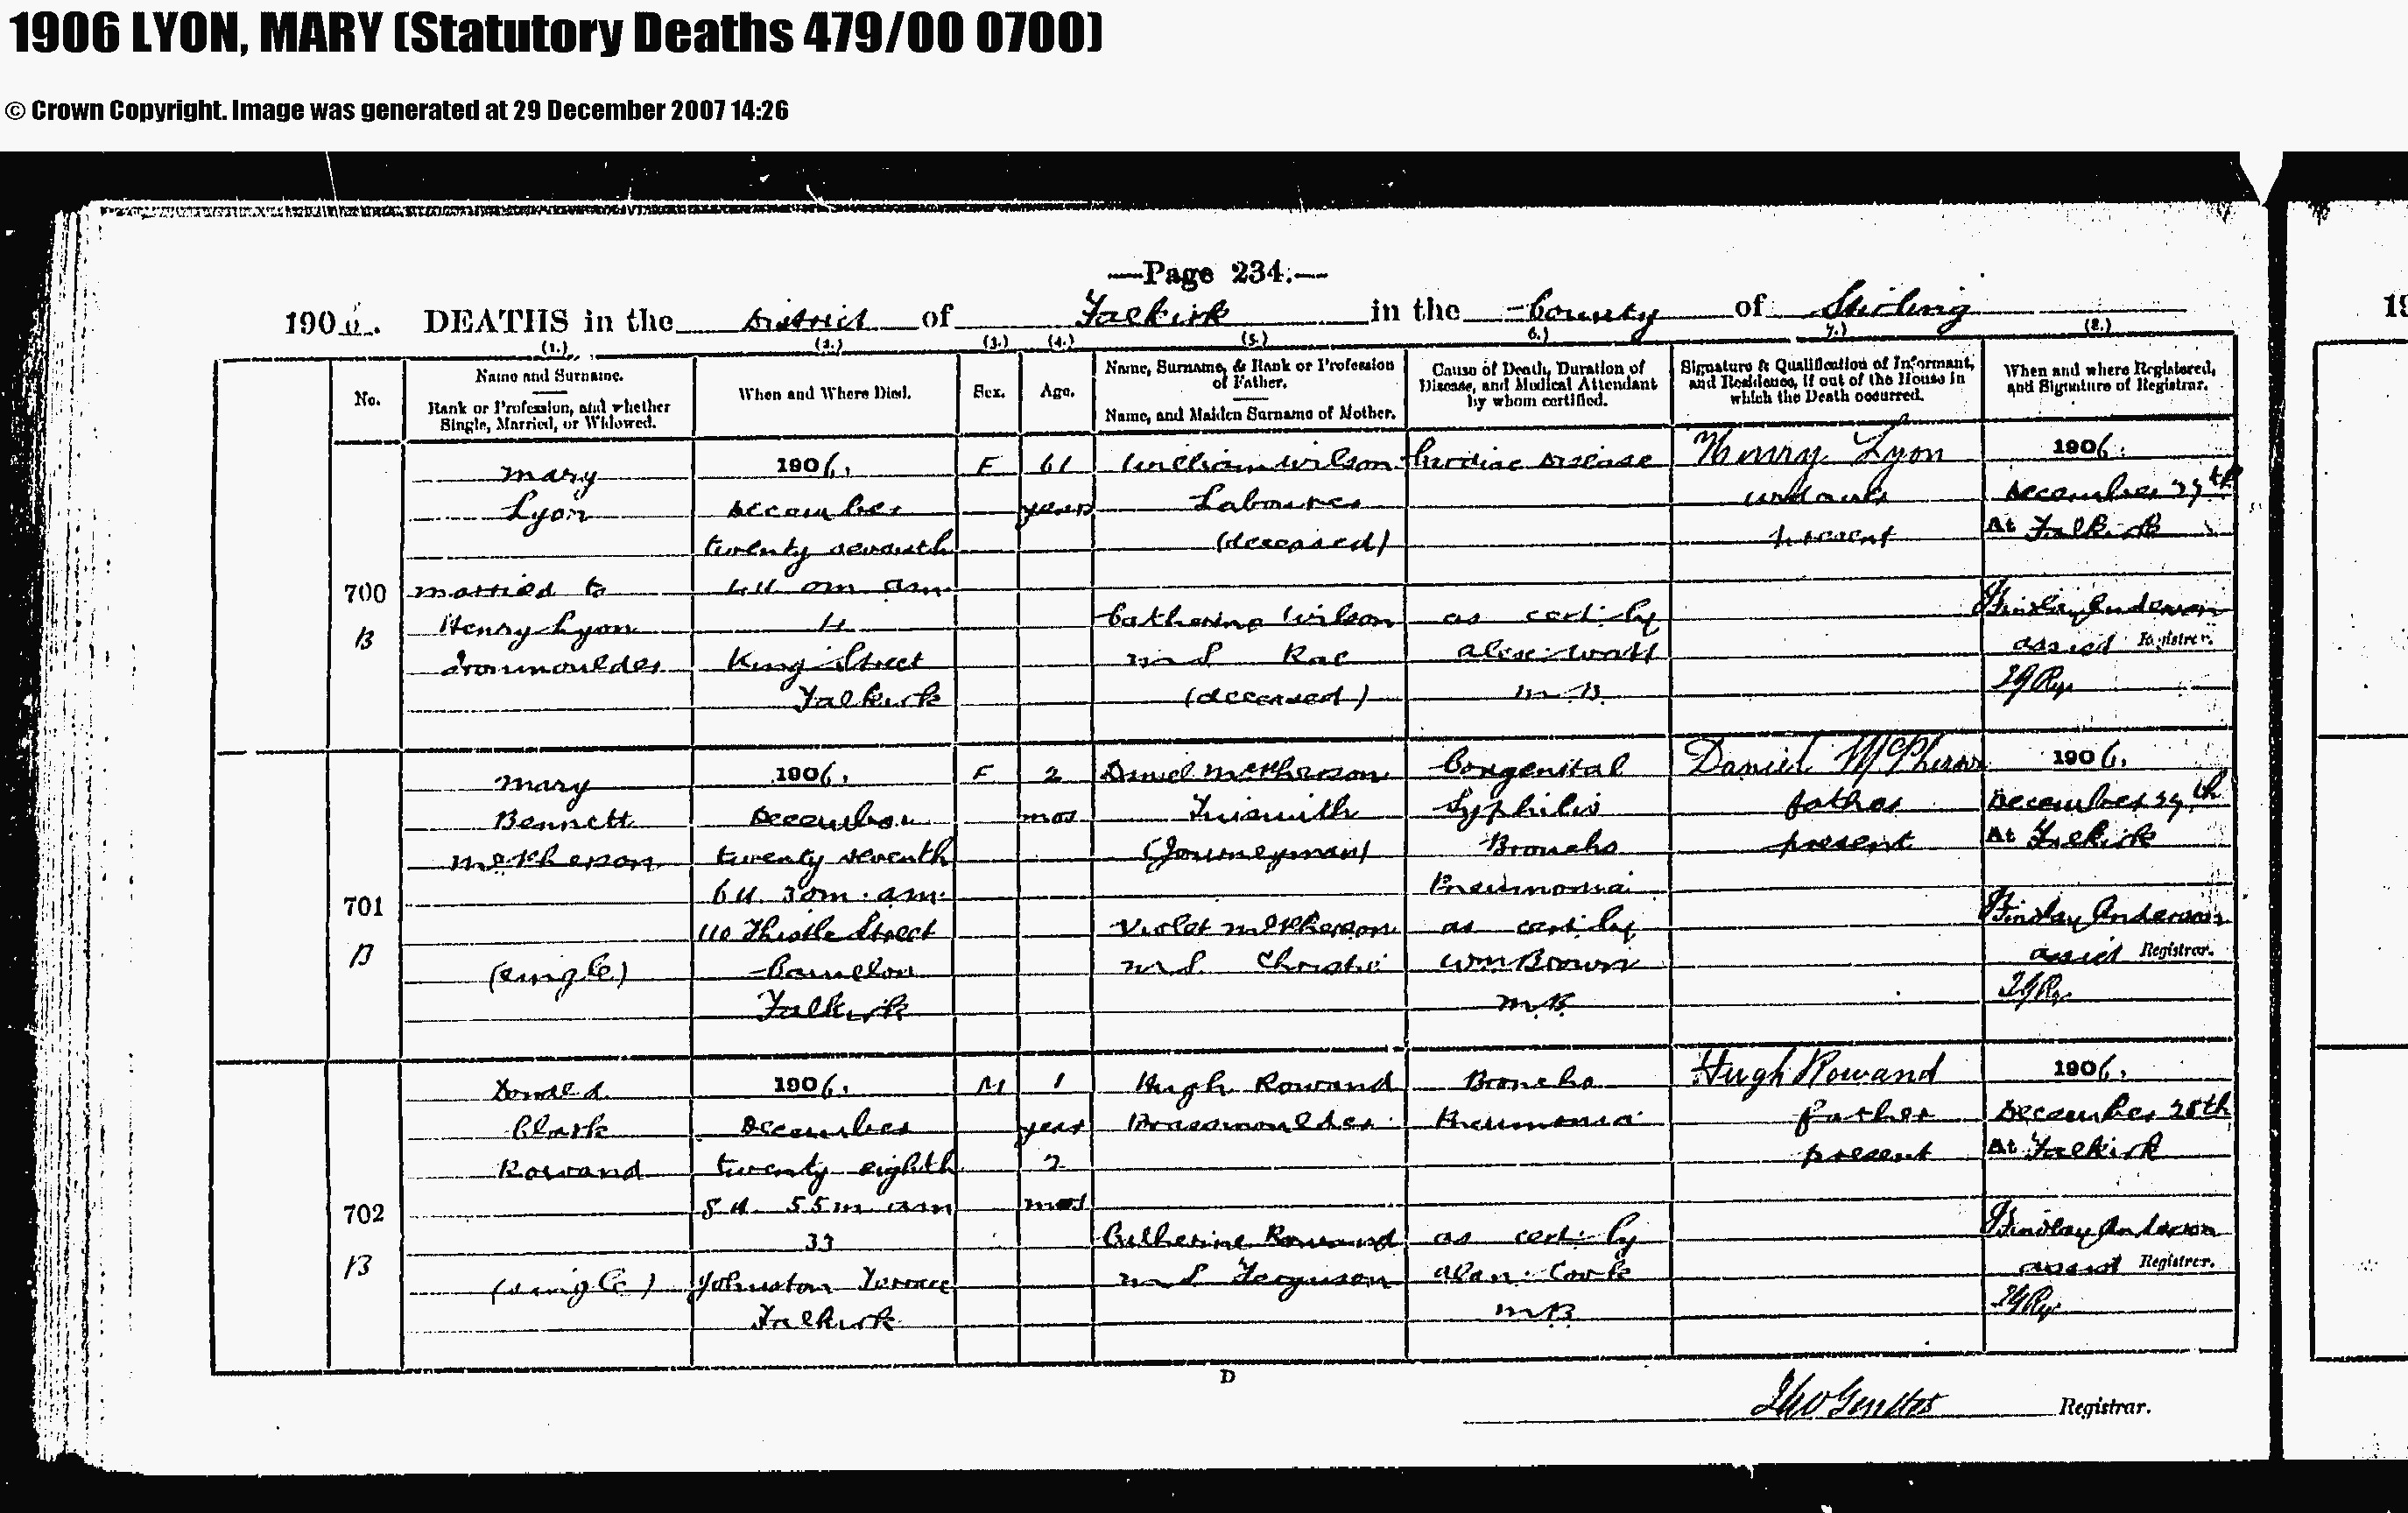 1906 LYON, MARY (Statutory Deaths 479/00 0700)
© Crown Copyright. Image was generated at 29 December 2007 14:26
—Page 234.—
1906. DEATHS in the District of Falkirk in the County of Stirling
(1.) (2.) (3.) (4.) (5.) 6.) 7.) (8.)
No.
Name and Surname.
Rank or Profession, and whether
Single, Married, or Widowed.
When and Where Died.
Sex.
Age.
Name, Surname, & Rank or Profession
of Father.
Name, and Maiden Surname of Mother.
Cause of Death, Duration of
Disease, and Medical Attendant
by whom certified.
Signature & Qualification of Informant,
and Residence, if out of the House in
which the Death occurred.
When and where Registered,
and Signature of Registrar.
700
B
Mary
Lyon
married to
Henry Lyon
Ironmoulder
1906.
December
twenty seventh
4H. 0m am.
King Street
Falkirk
F
61
years
William Wilson
Labourer
(deceased)
Catherine Wilson
m.S. Rae
(deceased)
Cardiac Disease
as cert. by
Alex. Watt
M.B.
Henry Lyon
widower
present
1906.
December 29th
At Falkirk
Findlay Anderson
assist Registrar.
701
B
Mary
Bennett
McPherson
(single)
1906.
December
twenty seventh
6H. 30m. am.
110 Thistle Street
Camelon
Falkirk
F
2
mos
Daniel McPherson
Tinsmith
(Journeyman)
Violet McPherson
m.S. Christie
Congenital
Syphilis
Broncho
Pneumonia
as cert. by
Wm Brown
M.B.
Daniel McPherson
father
present
1906.
December 29th
At Falkirk
Findlay Anderson
assist Registrar.
702
B
Donald
Clark
Rowand
(single)
1906.
December
twenty eighth
8H. 55m am
33
Johnston Terrace
Falkirk
M
1
year
2
mos
Hugh Rowand
Brassmoulder
Catherine Rowand
m.S. Ferguson
Broncho
Pneumonia
as cert. by
Alan Cook
M.B.
Hugh Rowand
father
present
1906.
December 28th
At Falkirk
Findlay Anderson
assist Registrar.
D
Registrar.